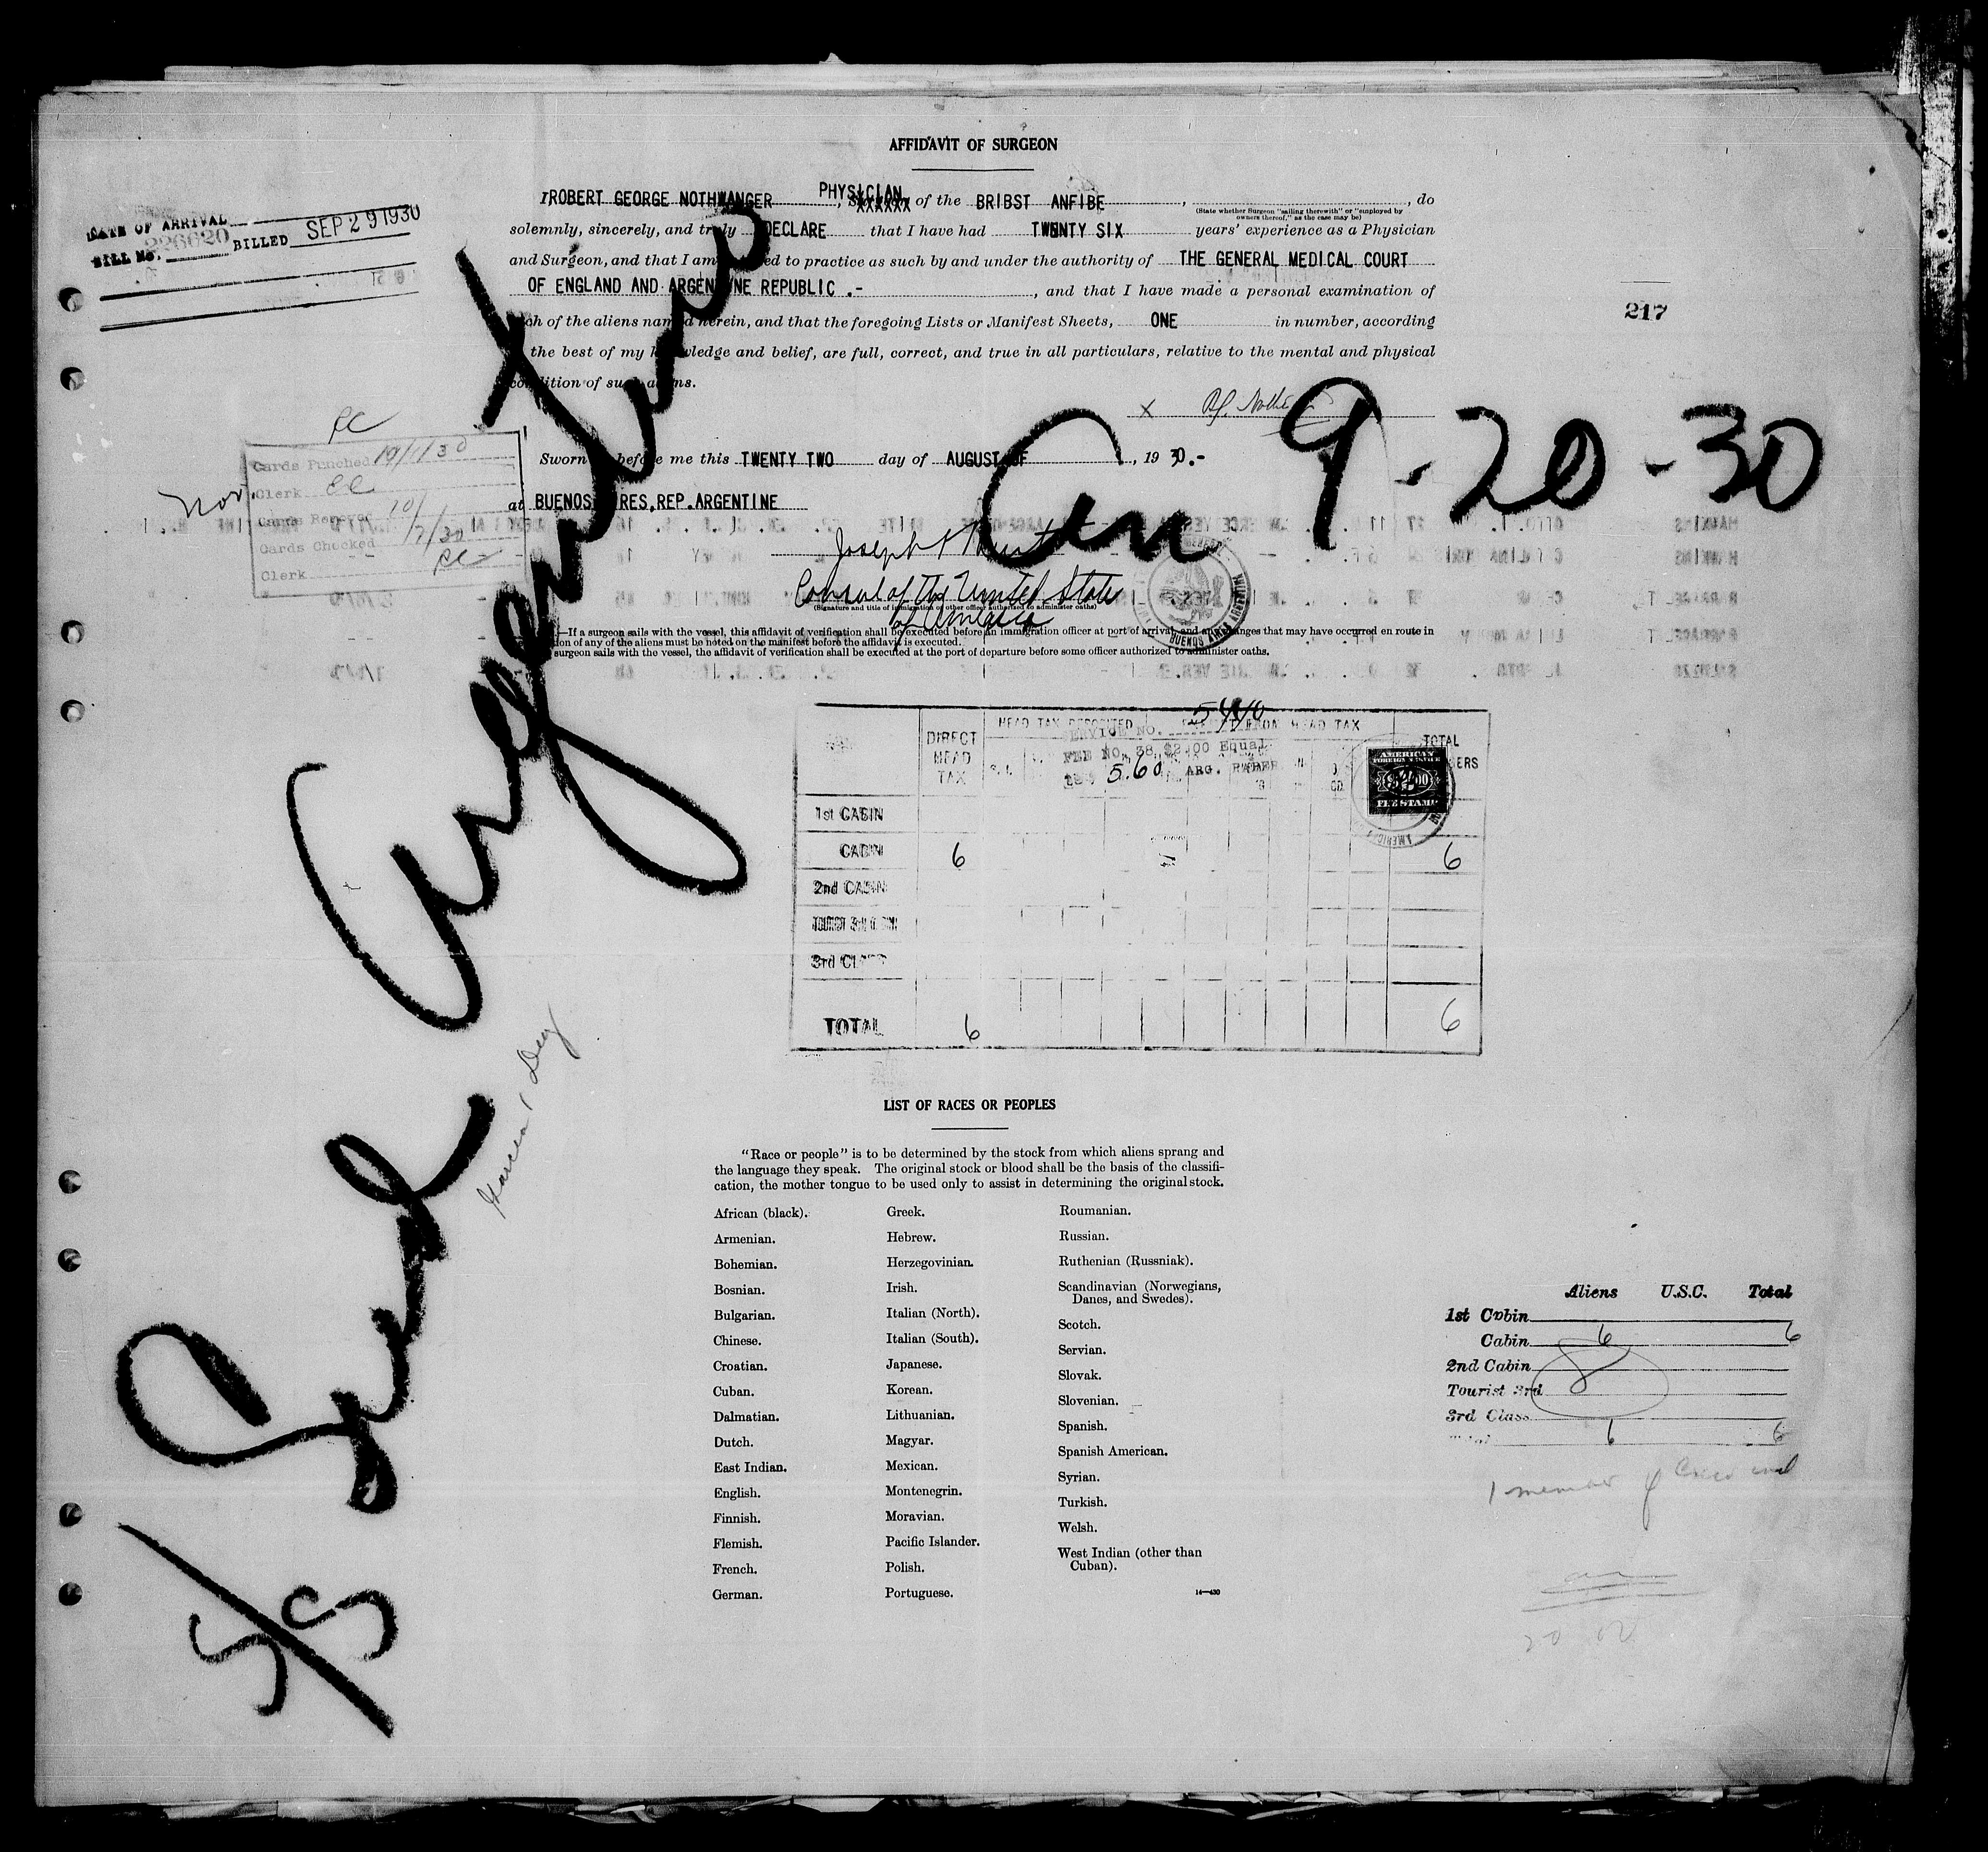 AFFIDAVIT OF SURGEON
I ROBERT GEORGE NOTHWANGER PHYSICIAN, Surgeon of the BRIBST ANFIBE, , do
(State whether Surgeon "sailing therewith" or "employed by owners thereof," as the case may be)
solemnly, sincerely, and truly DECLARE that I have had TWENTY SIX years' experience as a Physician
and Surgeon, and that I am ed to practice as such by and under the authority of THE GENERAL MEDICAL COURT
OF ENGLAND AND ARGENTINE REPUBLIC .- , and that I have made a personal examination of
ch of the aliens named herein, and that the foregoing Lists or Manifest Sheets, ONE in number, according
the best of my knowledge and belief, are full, correct, and true in all particulars, relative to the mental and physical
condition of such aliens.
DATE OF ARRIVAL
BILL No. 226620 BILLED SEP 29 1930
217
X
Sworn before me this TWENTY TWO day of AUGUST OF , 19 30.-
at BUENOS AIRES, REP. ARGENTINE
Arr 9-20-30
Cards Punched 10/1/30
Clerk
Cards Checked
Clerk
Joseph
Consul of the United States
of America
(Signature and title of immigration or other officer authorized to administer oaths)
BUENOS AIRES
.—If a surgeon sails with the vessel, this affidavit of verification shall be executed before an immigration officer at port of arrival, and any changes that may have occurred en route in
tion of any of the aliens must be noted on the manifest before the affidavit is executed.
surgeon sails with the vessel, the affidavit of verification shall be executed at the port of departure before some officer authorized to administer oaths.
S/S Sud Argentino
HEAD TAX DEPOSITED FROM HEAD TAX
SERVICE NO. 5440
DIRECT HEAD TAX
FEE No. 38 $2.00 Equal
5.60 ARG. PAPER
TOTAL
AMERICAN
FOREIGN SERVICE
FEE STAMP
1st CABIN
CABIN 6 6
2nd CABIN
TOURIST 3rd CABIN
3rd CLASS
TOTAL 6 6
LIST OF RACES OR PEOPLES
"Race or people" is to be determined by the stock from which aliens sprang and
the language they speak. The original stock or blood shall be the basis of the classifi-
cation, the mother tongue to be used only to assist in determining the original stock.
African (black).
Armenian.
Bohemian.
Bosnian.
Bulgarian.
Chinese.
Croatian.
Cuban.
Dalmatian.
Dutch.
East Indian.
English.
Finnish.
Flemish.
French.
German.
Greek.
Hebrew.
Herzegovinian.
Irish.
Italian (North).
Italian (South).
Japanese.
Korean.
Lithuanian.
Magyar.
Mexican.
Montenegrin.
Moravian.
Pacific Islander.
Polish.
Portuguese.
Roumanian.
Russian.
Ruthenian (Russniak).
Scandinavian (Norwegians,
Danes, and Swedes).
Scotch.
Servian.
Slovak.
Slovenian.
Spanish.
Spanish American.
Syrian.
Turkish.
Welsh.
West Indian (other than
Cuban).
14—430
Aliens U.S.C. Total
1st Cabin
Cabin 6 6
2nd Cabin
Tourist 3rd
3rd Class
Total 6 6
1 member of Crew incl